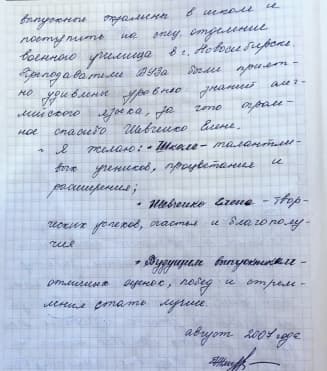 выпускные экзамены в школе и
поступить на спец. отделение
военного училища в г. Новосибирске.
Преподаватели ВУЗа были прият-
но удивлены уровню знаний анг-
лийского языка, за что огром-
ное спасибо Шевченко Елене.
• Я желаю: • Школе - талантли-
вых учеников, процветания и
расширения;
• Шевченко Елене - твор-
ческих успехов, счастья и благополу-
чия
• Будущим выпускникам -
отличных оценок, побед и стрем-
ления стать лучше.
август 2007 года